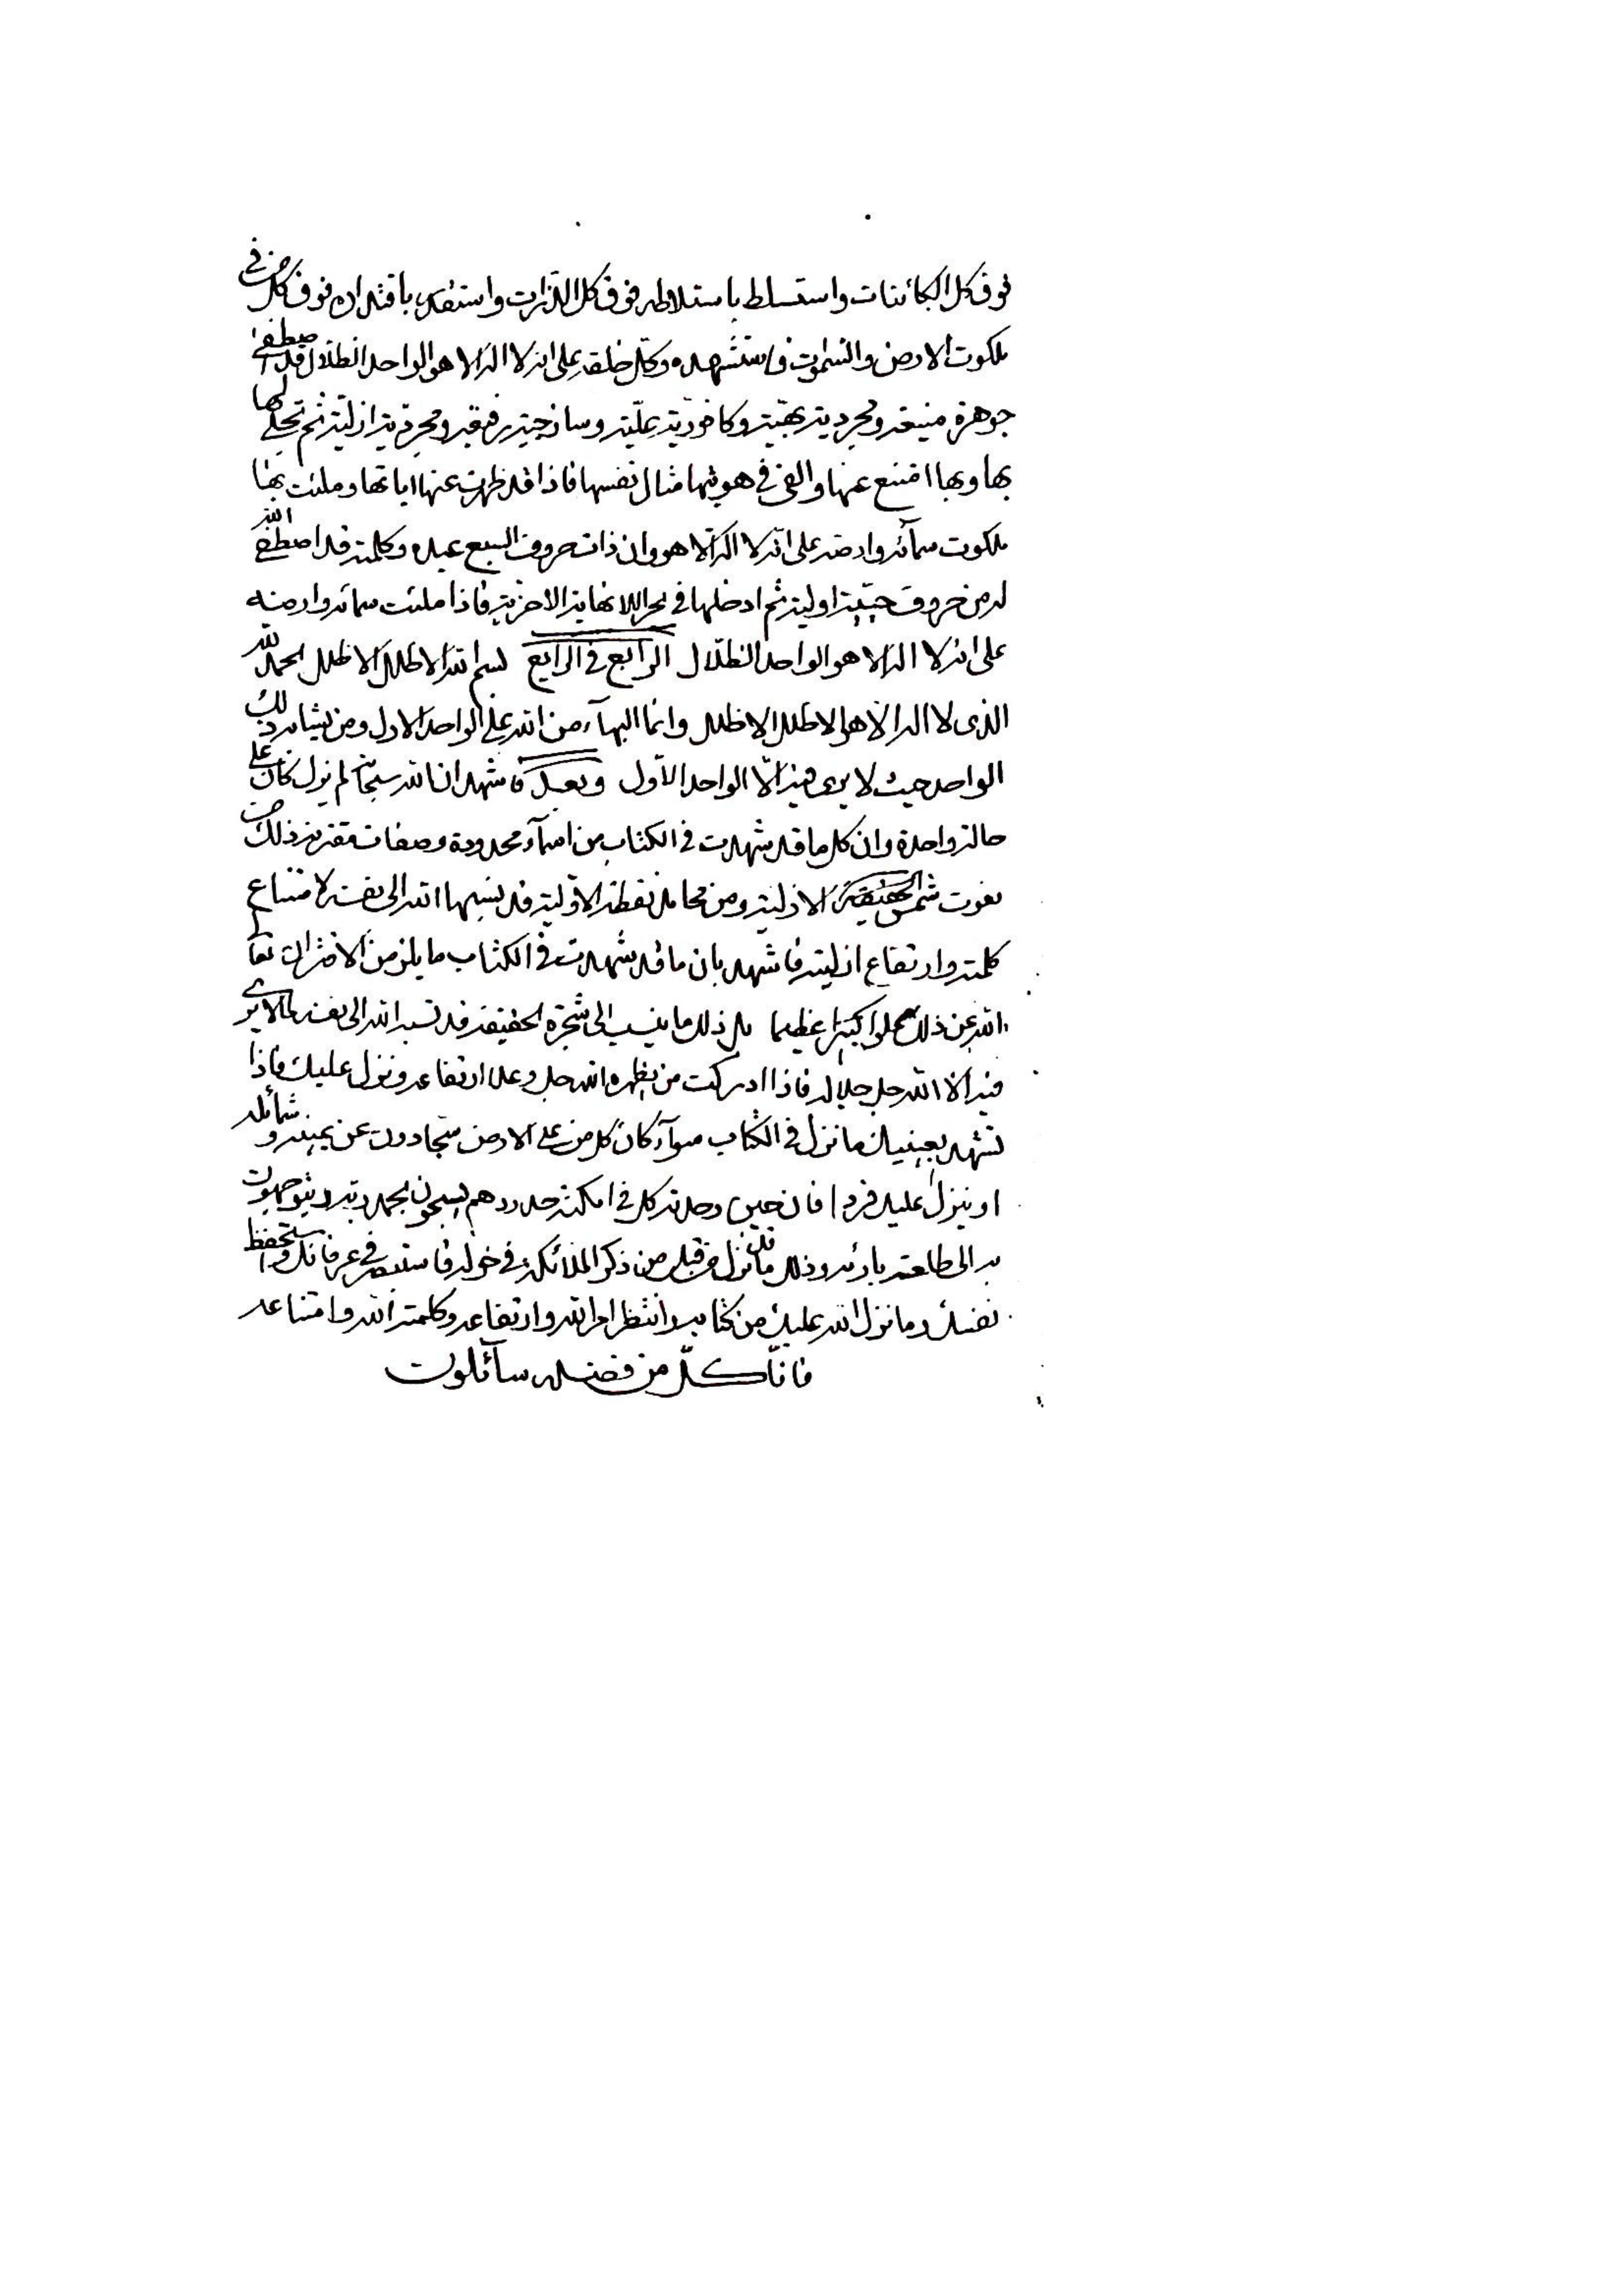 فوق كل الكائنات واستسلط باستلاطه فوق كل الذرات واستقدر باقتداره فوق كل من في
ملكوت الارض والسموات فاستشهده وكل خلقه على انه لا اله الا هو الواحد الظلال قد اصطفى
جوهرة منيعة ومجردية بهية وكافورية علية وساذجية رفيعة ومجردية ازلية ثم تجلى لها
بها وبها امتنع عنها والقى في هويتها مثال نفسها فاذا قد ظهرت عنها اياتها وملئت بها
ملكوت سمائه وارضه على انه لا اله الا هو وان ذات حروف السبع عبده وكلمته قد اصطفى الله
له من حروف حيية اولية ثم ادخلها في بحر اللانهاية الاخزية فاذا ملئت سمائه وارضه
على انه لا اله الا هو الواحد الظلال الرابع في الرابع بسم الله الاظلل الاظلل الحمد لله
الذي لا اله الا هو الاظلل الاظلل وانما البهاء من الله على الواحد الاول ومن يشابه ذلك
الواحد حيث لا يرى فيه الا الواحد الاول وبعد فاشهد ان الله سبحانه لم يزل كان على
حالة واحدة وان كل ما قد شهدت في الكتاب من اسماء محدودة وصفات مقترنة ذلك من
نعوت شمس الحقيقة الازلية ومن محامد نقطة الاولية قد نسبها الله الى نفسه لامتناع
كلمته وارتفاع ازليته فاشهد بان ما قد شهدت في الكتاب ما يلزمه الاقتران تعالى
الله عن ذلك علوا كبيرا عظيما بل ذلك ما ينسب الى شجرة الحقيقة قد نسبه الله الى نفسه لما لا يرى
فيه الا الله جل جلاله فاذا ادركت من يظهره الله جل وعلا ارتفاعه ونزل عليك فاذا
تشهد بعينيك ما نزل في الكتاب سواء كان كل من على الارض سجادون عن يمينه وشمائله
او ينزل عليك فردا فان حين وحدته كل في امكنة حدودهم يسبحون بحمد ربه ويتوجهون
به الى طلعة بارئه وذلك ما قد نزل من قبل من ذكر الملائكة في حوله فاستبصر في عرفانك واستحفظ
نفسك وما نزل الله عليك من كتابه وانتظر امر الله وارتفاعه وكلمة الله وامتناعه
فانا كل من فضله سائلون